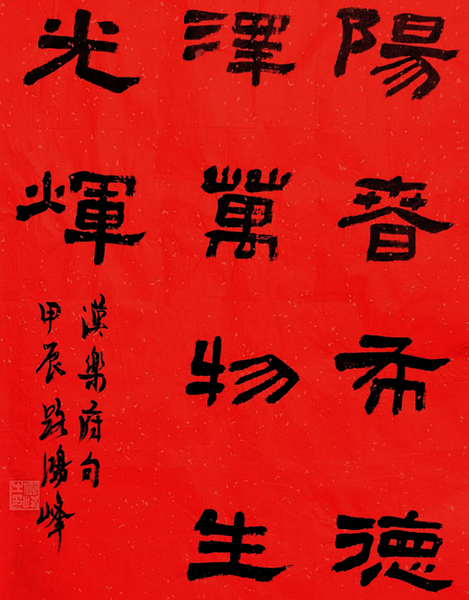 陽春布德
澤萬物生
光輝
漢樂府句
甲辰 路 峰